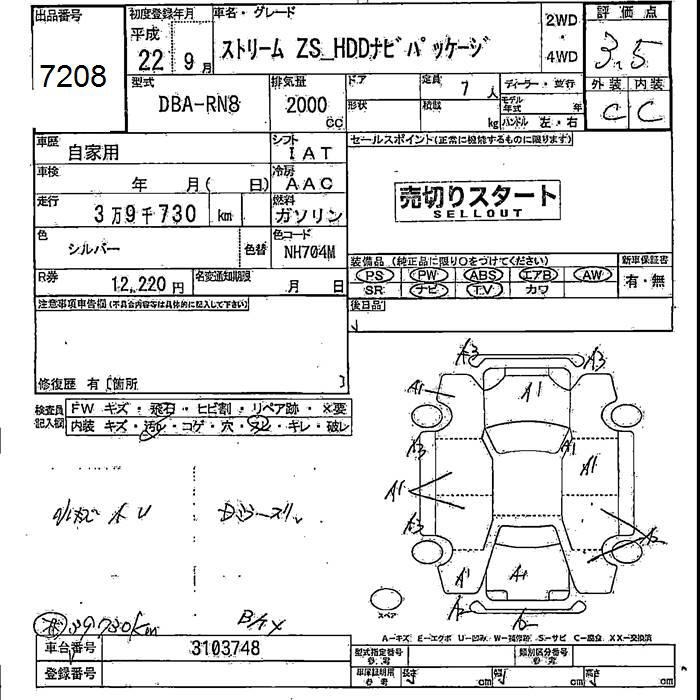 出品番号
7208
初度登録年月
平成
22 9月
車名・グレード
ストリーム ZS_HDDナビパッケージ
2WD
・
4WD
評価点
3.5
外装 内装
C C
型式
DBA-RN8
排気量
2000
cc
ドア
形状
定員 7 人
積載 kg
ディーラー・並行
モデル年式 年
ハンドル 左・右
車歴
自家用
シフト
IAT
車検
年 月( 日)
冷房
AAC
走行
3万9千730 km
燃料
ガソリン
色
シルバー
色替
色コード
NH704M
R券
12,220円
名変通知期限
月 日
セールスポイント(正常に機能するものに限ります)
売切りスタート
SELLOUT
装備品(純正品に限り○をつけてください)
PS PW ABS エアB AW
SR ナビ TV カワ
新車保証書
有・無
後日品
注意事項車申告欄(不具合内容等は具体的に記入して下さい)
修復歴 有〔箇所 〕
検査員記入欄
FW キズ・飛石・ヒビ割・リペア跡・×要
内装 キズ・汚レ・コゲ・穴・スレ・キレ・破レ
A3 A3
A1 A1
A3 A1 A1
A1
A3
A1 A1
A2
スペア
39730km
A-キズ E-エクボ U-凹み W-補修跡 S-サビ C-腐食 XX-交換済
車台番号
3103748
登録番号
型式指定番号
参考
類別区分番号
参考
車庫証明用
参考
長さ cm 幅 cm 高さ cm